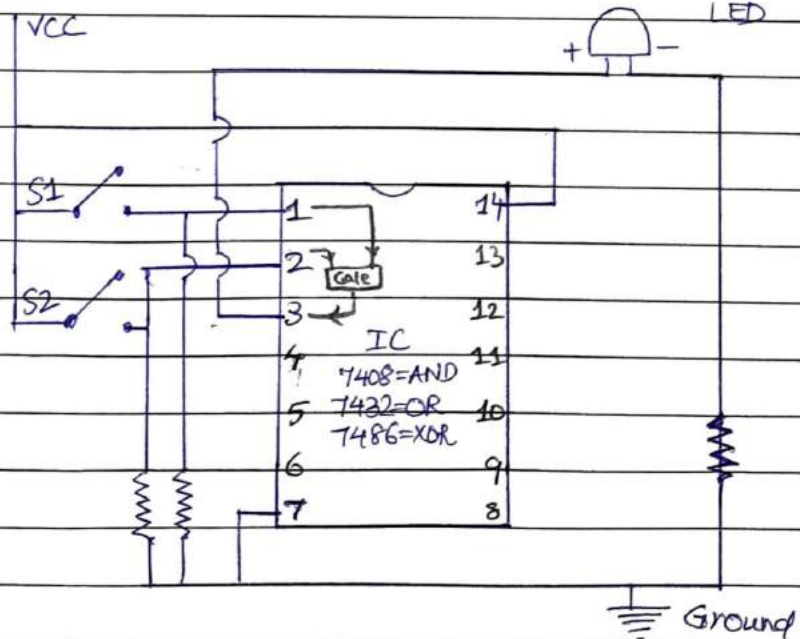 VCC
LED
+ −
S1
S2
1
2
3
4
5
6
7
14
13
12
11
10
9
8
Gate
IC
7408=AND
7432=OR
7486=XOR
Ground